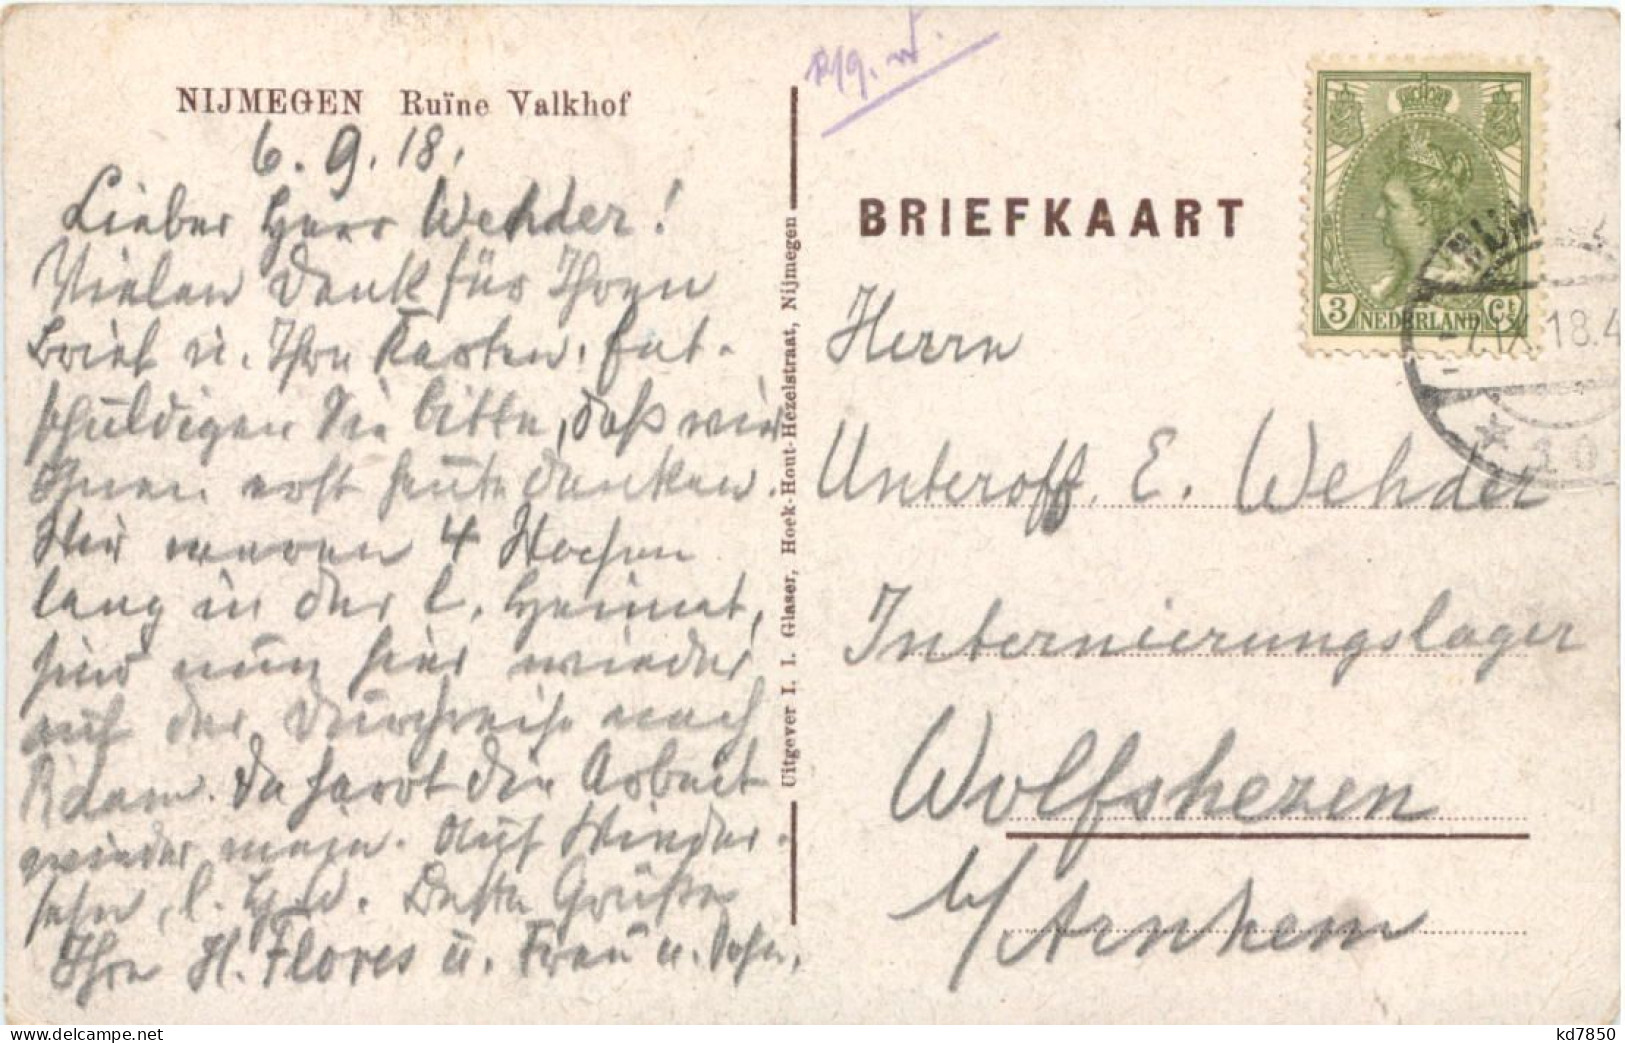 NIJMEGEN Ruïne Valkhof
6.9.18.
Lieber Herr Wehder!
Vielen Dank für Ihren
Brief u. Ihre Karten. Ent-
schuldigen Sie bitte, daß wir
Ihnen erst heute danken.
Wir waren 4 Wochen
lang in der l. Heimat,
sind nun hier wieder
auf der Durchreise nach
R'dam. Da harrt die Arbeit
wieder mein. Auf Wieder-
sehn, l. H. W. Beste Grüße
Ihre H. Flores u. Frau u. Sohn.
Uitgever I. I. Glaser, Hoek-Hout-Hezelstraat, Nijmegen
BRIEFKAART
3 NEDERLAND Ct
IX 18.4
10
Herrn
Unteroff. E. Wehder
Internierungslager
Wolfshezen
b/Arnhem
kd7850